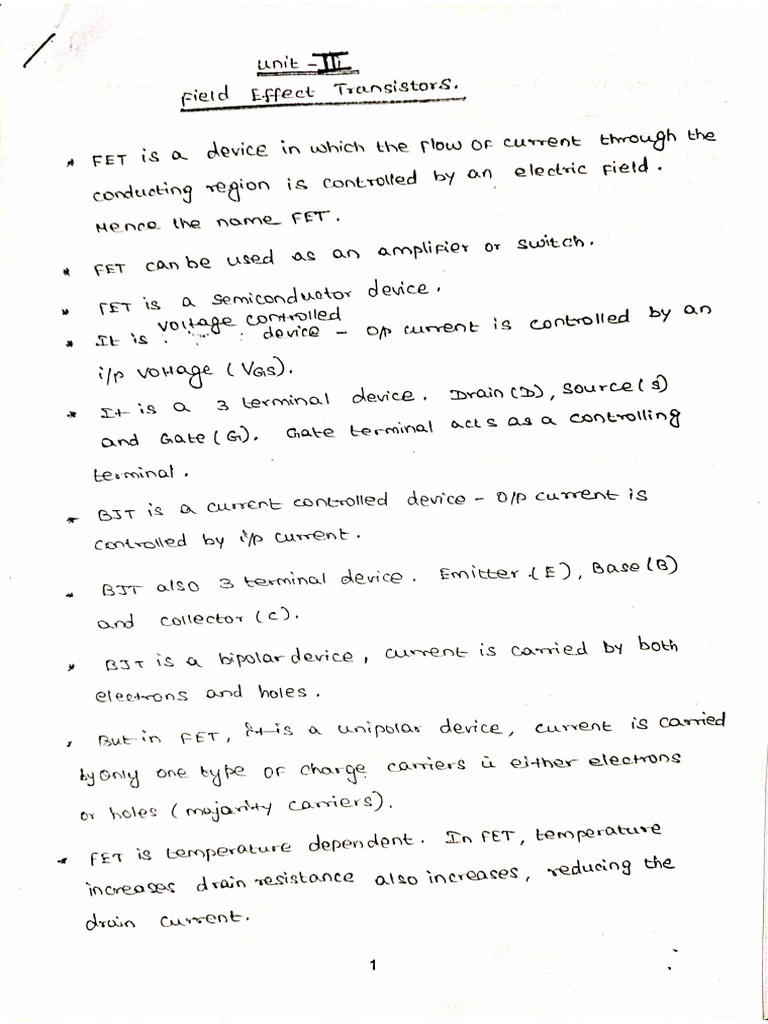 Unit - III
Field Effect Transistors.
* FET is a device in which the flow of current through the
conducting region is controlled by an electric field.
Hence the name FET.
* FET can be used as an amplifier or switch.
* FET is a semiconductor device.
* It is voltage controlled device - O/p current is controlled by an
i/p voltage (VGS).
* It is a 3 terminal device. Drain (D), Source (S)
and Gate (G). Gate terminal acts as a controlling
terminal.
* BJT is a current controlled device - O/p current is
controlled by i/p current.
* BJT also 3 terminal device. Emitter (E), Base (B)
and collector (C).
* BJT is a bipolar device, current is carried by both
electrons and holes.
* But in FET, it is a unipolar device, current is carried
by only one type of charge carriers ie either electrons
or holes (majority carriers).
* FET is temperature dependent. In FET, temperature
increases drain resistance also increases, reducing the
drain current.
1